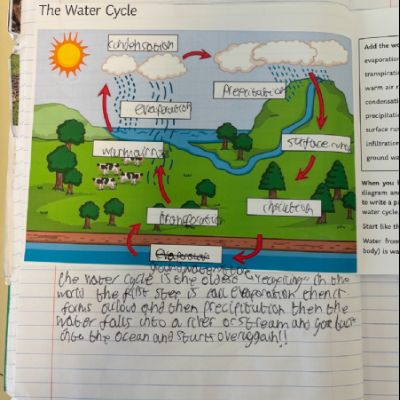 The Water Cycle
condensation
Precipitation
evaporation
surface run
warm air r
transpiration
infiltration
Evaporation
ground water
the water cycle is the oldest "recycling" in the
world the first step is call evaporation then it
forms a cloud and then precipitation then the
water falls into a river or stream and goes back
into the ocean and starts over again!!
Add the wo
evaporation
transpiratio
warm air r
condensati
precipitatio
surface run
infiltration
ground wa
When you h
diagram an
to write a p
water cycle
Start like th
Water from
body) is wa